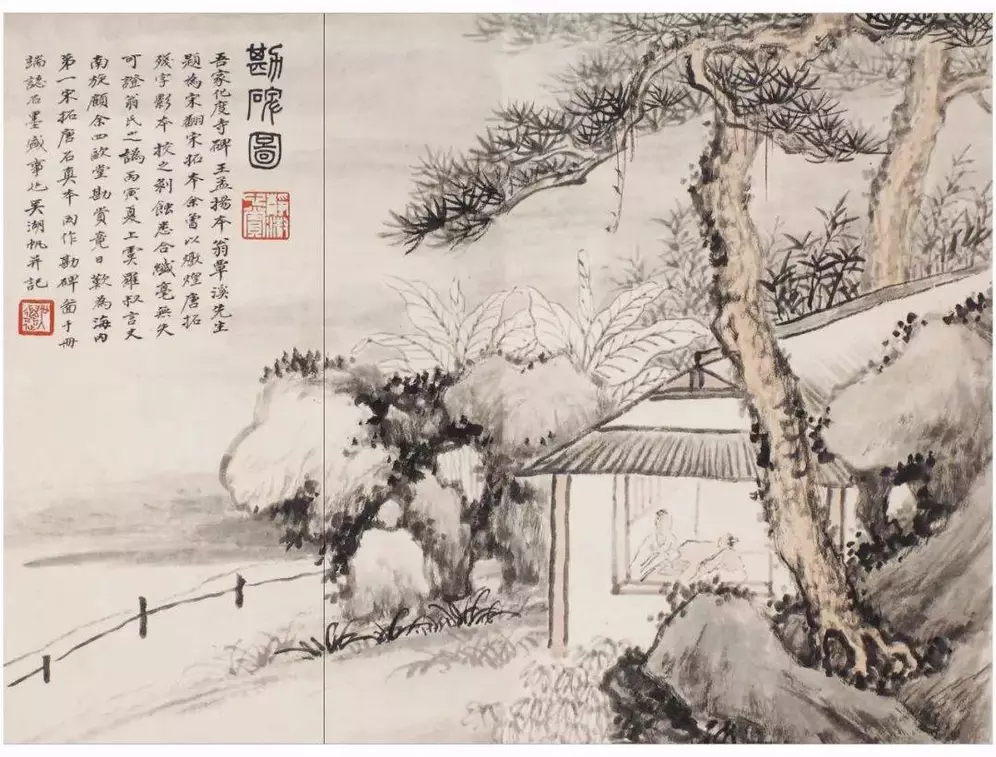 勘碑圖
吾家化度寺碑王孟揚本翁覃溪先生
題為宋翻宋拓本余曾以燉煌唐拓
殘字影本校之剥蝕悉合纖毫無失
可證翁氏之譌丙寅夏上虞羅叔言丈
南旋顧余四歐堂勘賞竟日歎為海內
第一宋拓唐石真本因作勘碑圖于冊
端誌石墨盛事也吳湖帆并記